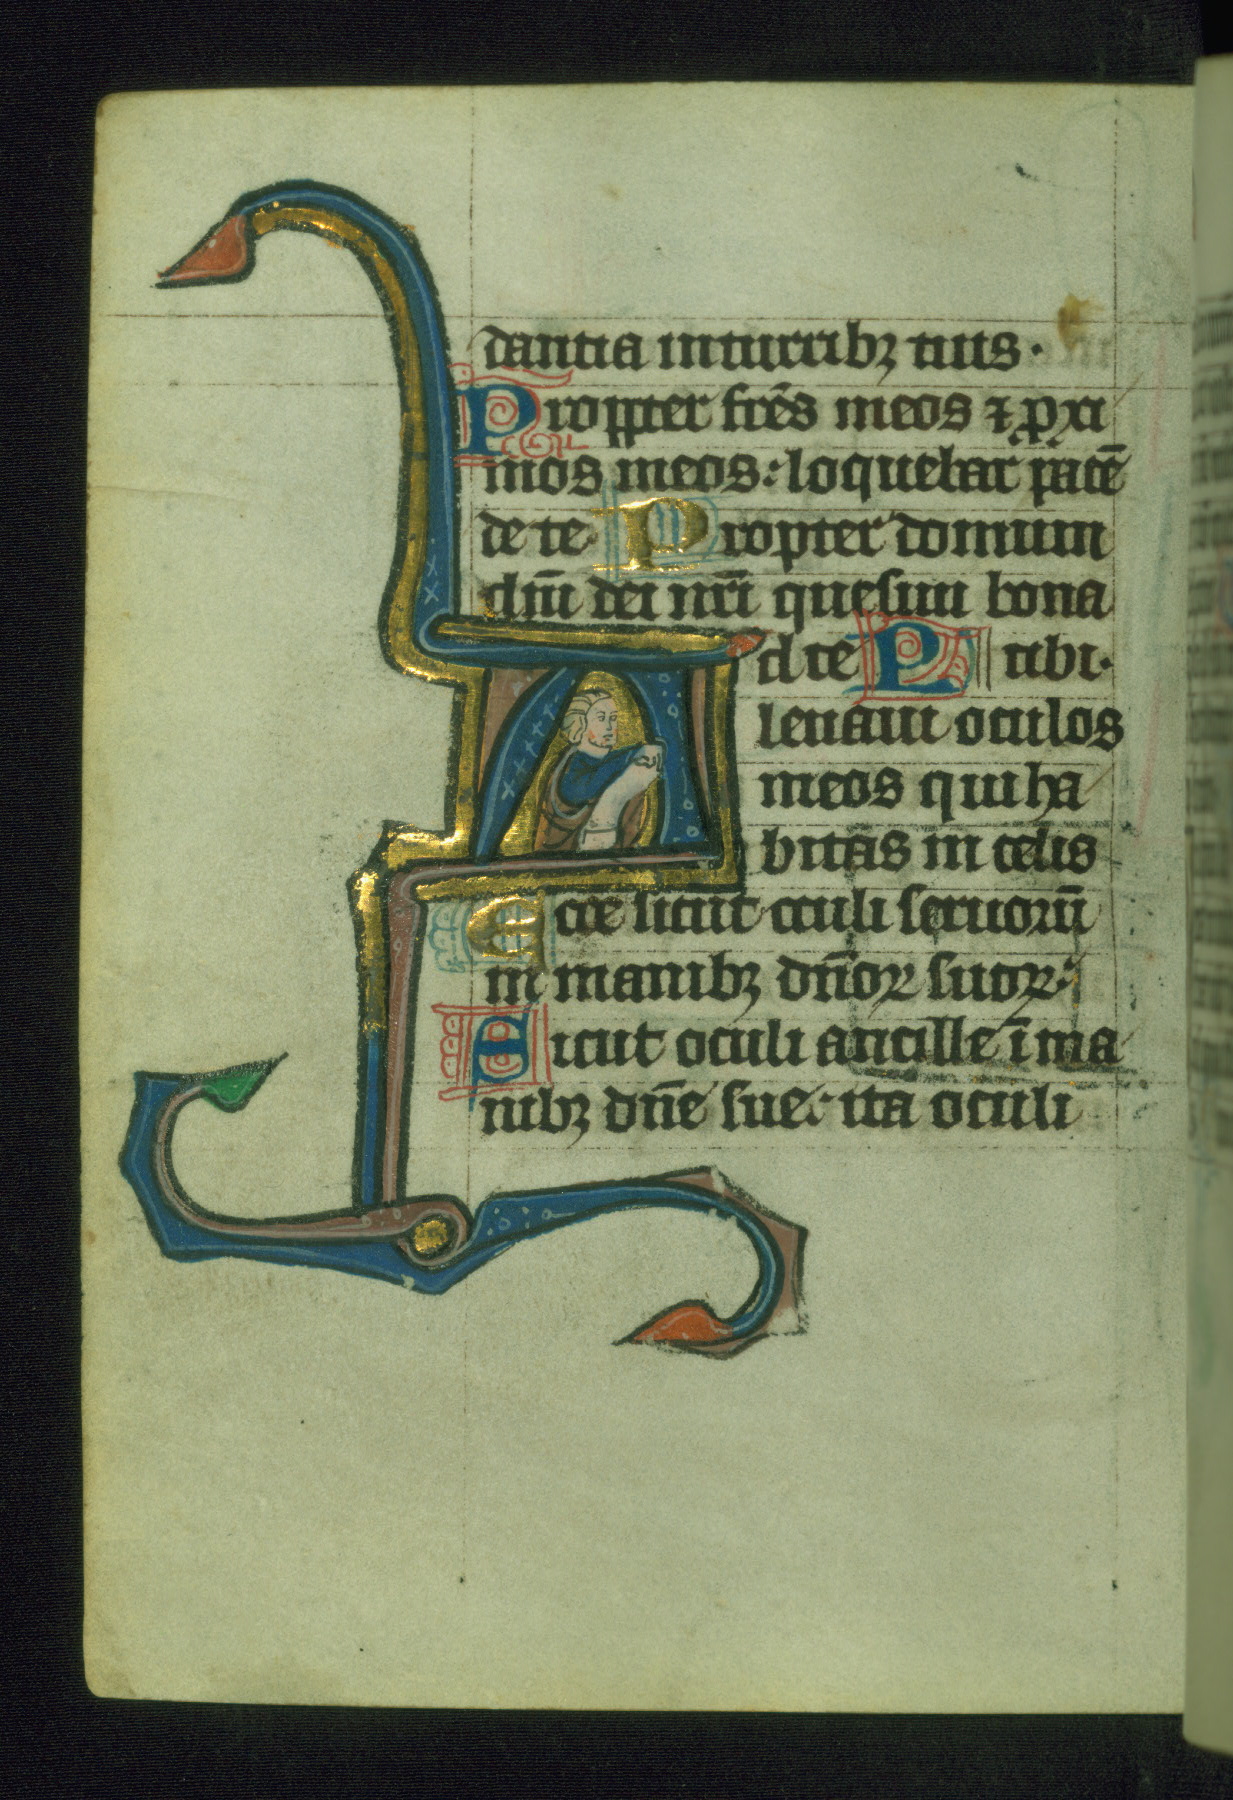 dantia in turribꝫ tuis·
Propter fr̄es meos ⁊ ꝓxi
mos meos: loquebar pacē
de te· Propter domum
dn̄i dei nr̄i quesiui bona
A d te P tibi·
leuaui oculos
meos qui ha
bitas in celis
Ecce sicut oculi seruorū
in manibꝫ dn̄oꝝ suoꝝ·
Sicut oculi ancille ī ma
nibꝫ dn̄e sue: ita oculi